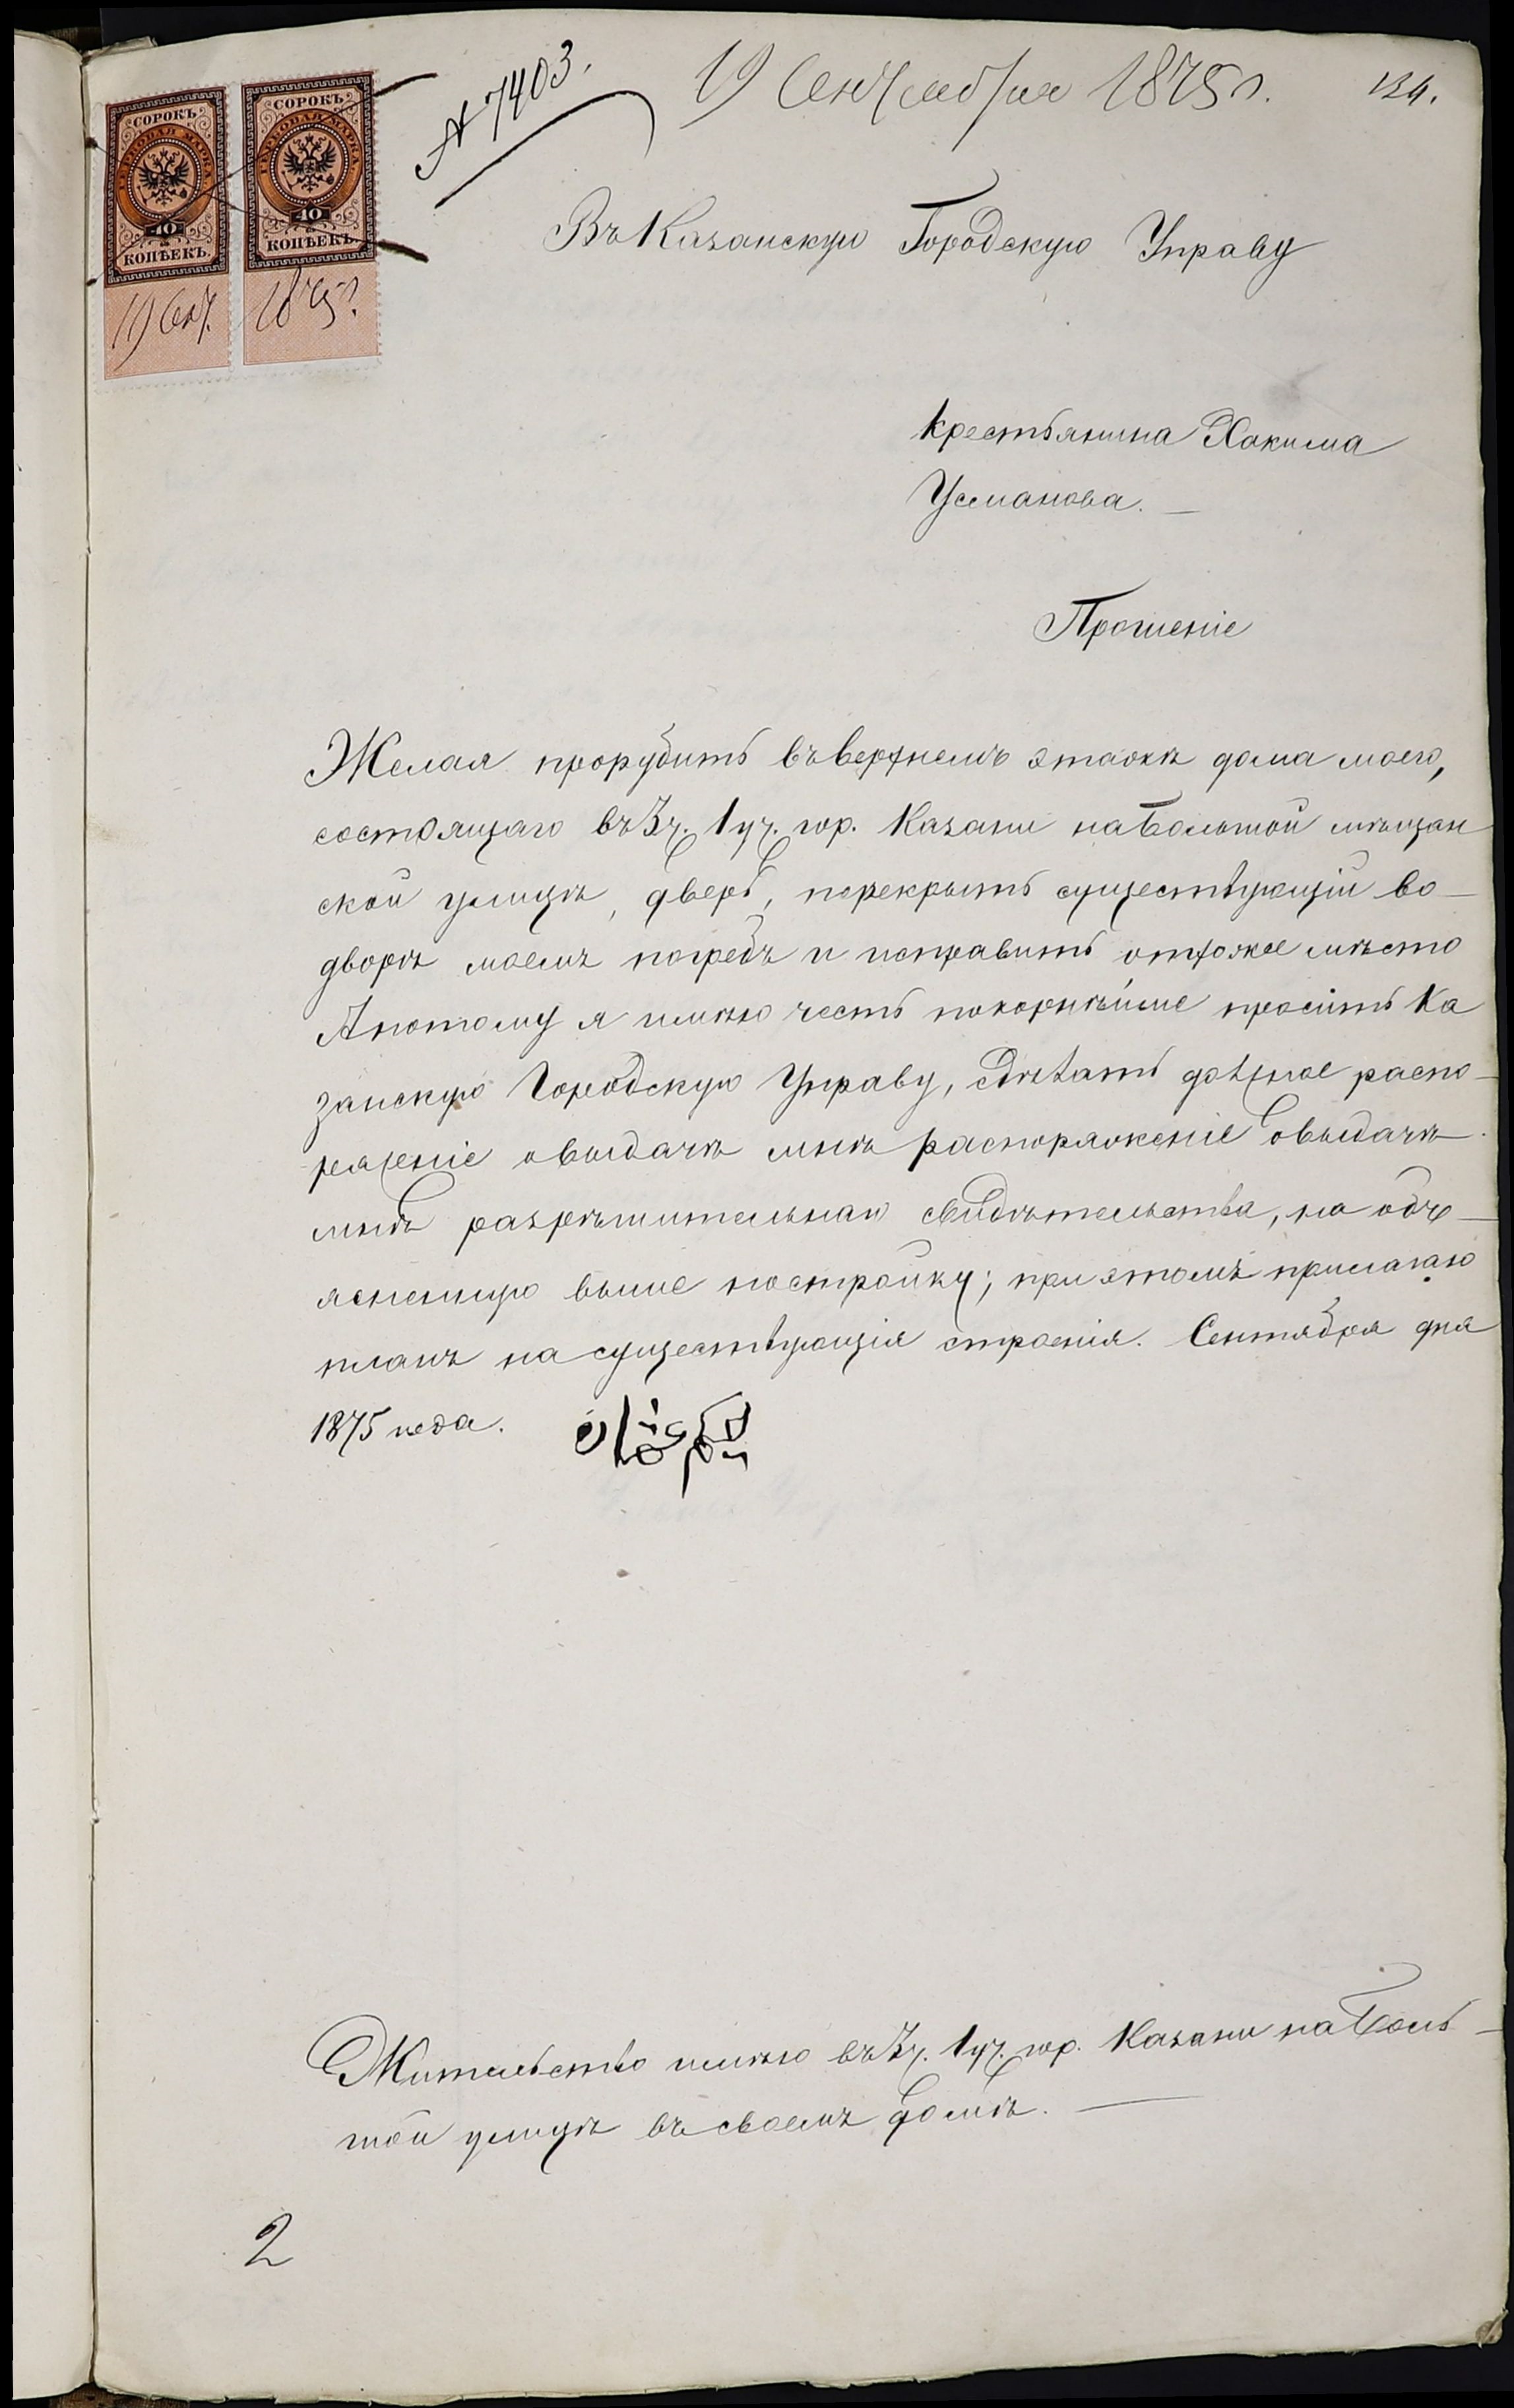 СОРОКЪ
ГЕРБОВАЯ МАРКА
40
КОПѢЕКЪ.
СОРОКЪ
ГЕРБОВАЯ МАРКА
40
КОПѢЕКЪ.
19 Сент. 1875 г.
№ 7403.
19 Сентября 1875 г.
134.
Въ Казанскую Городскую Управу
Крестьянина Хакима
Усманова. —
Прошеніе
Желая прорубить въ верхнемъ этажѣ дома моего,
состоящаго въ 3 ч. 1 уч. гор. Казани на Большой мѣщан
ской улицѣ, дверь, перекрыть существующій во-
дворѣ моемъ погребъ и исправить отхожее мѣсто
А потому я имѣю честь покорнѣйше просить Ка
занскую Городскую Управу, сдѣлать должное распо-
ряженіе о выдачѣ мнѣ распоряженіе о выдачѣ
мнѣ разрѣшительнаго свидѣтельства, на объ-
ясненную выше постройку; при этомъ прилагаю
планъ на существующія строенія. Сентября дня
1875 года.
Жительство имѣю въ 3 ч. 1 уч. гор. Казани на Боль-
шой улицѣ въ своемъ домѣ. —
2